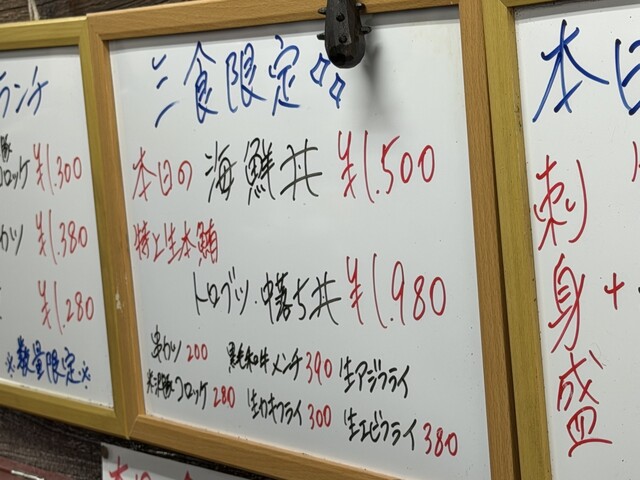 ランチ
コロッケ ¥1.300
カツ ¥1.380
¥1.280
※数量限定※
三食限定
本日の 海鮮丼 ¥1.500
特上生本鮪
トロブツ.中落ち丼 ¥1.980
串カツ 200 黒毛和牛メンチ 390 生アジフライ
米沢豚コロッケ 280 生カキフライ 300 生エビフライ 380
本日
刺身盛